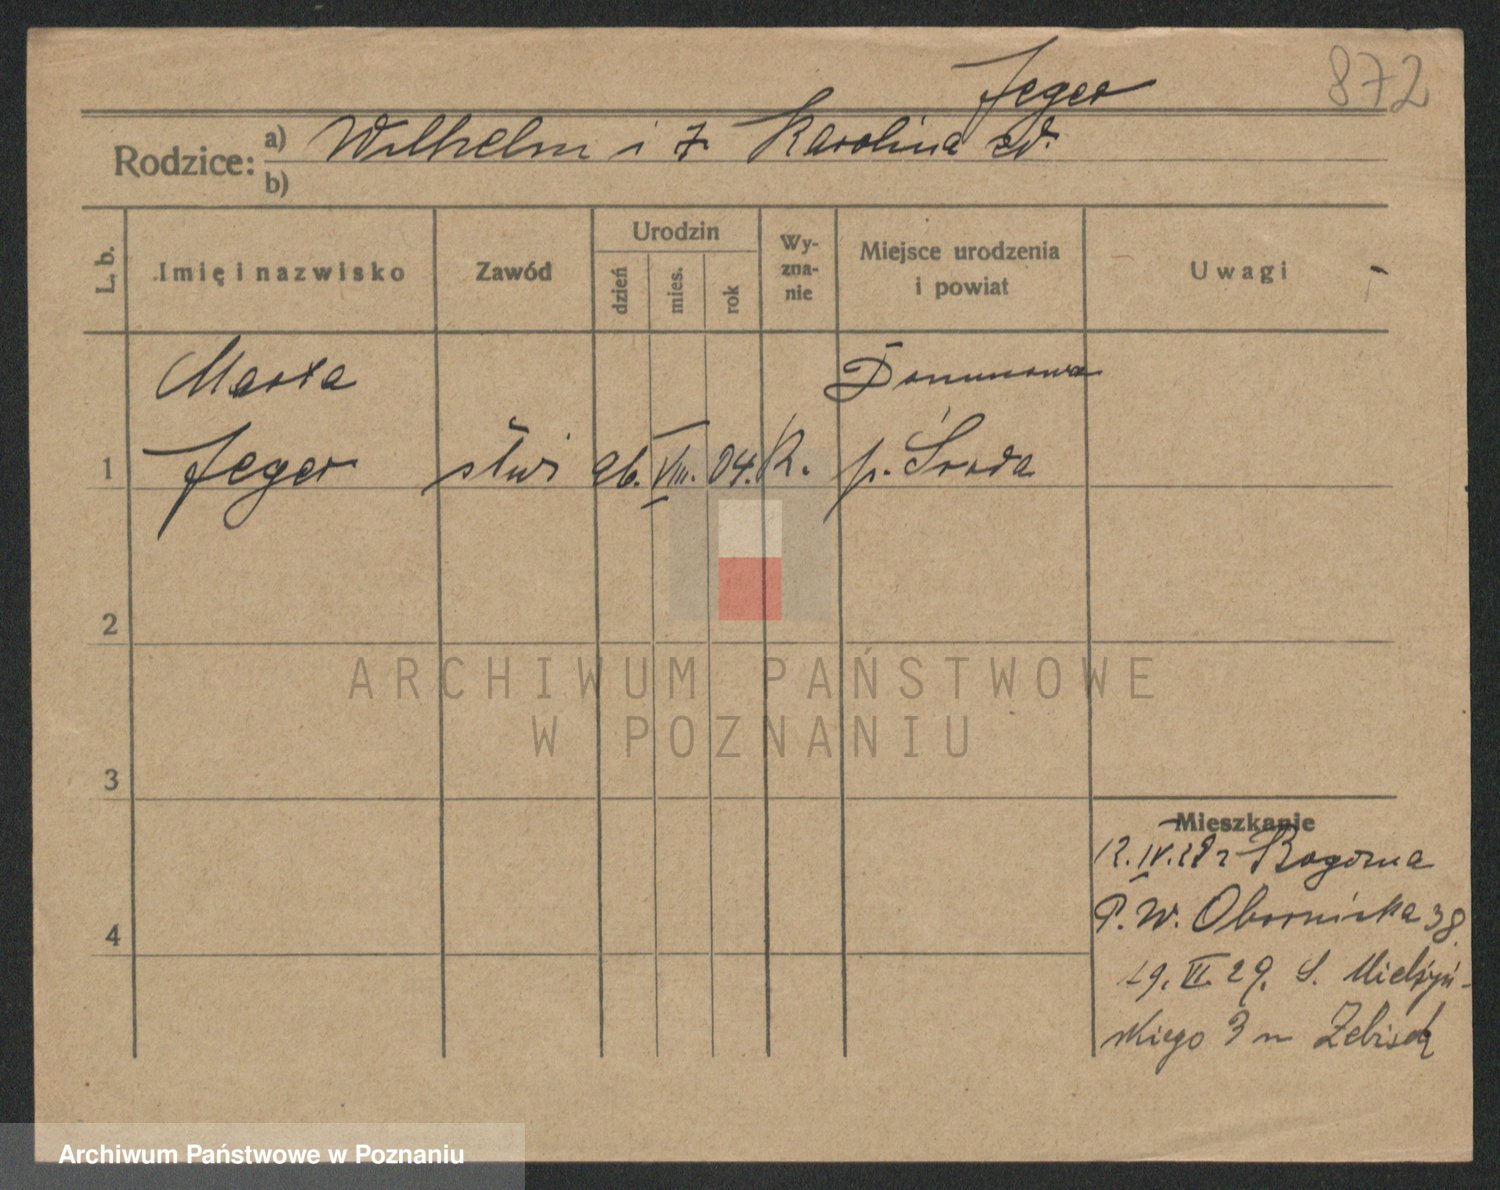 872
Jeger
Rodzice: a) Wilhelm i ż. Karolina zd.
b)
L. b. Imię i nazwisko Zawód Urodzin dzień mies. rok Wyznanie Miejsce urodzenia i powiat Uwagi
Marta Dominowo
1 Jeger służ 26. VII. 04. K. p. Środa
2
ARCHIWUM PAŃSTWOWE
W POZNANIU
3
4
Mieszkanie
12. IV. 28 z
P. W. Obornicka 38.
29. VI. 29. S. Mielżyń-
skiego 3 m
Archiwum Państwowe w Poznaniu